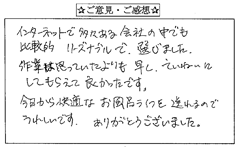 ☆ご意見・ご感想☆
インターネットで多々ある会社の中でも
比較的リーズナブルで、選びました。
作業は思っていたよりも早く、ていねいに
してもらえて良かったです。
今日から快適なお風呂ライフを送れるので
うれしいです。ありがとうございました。